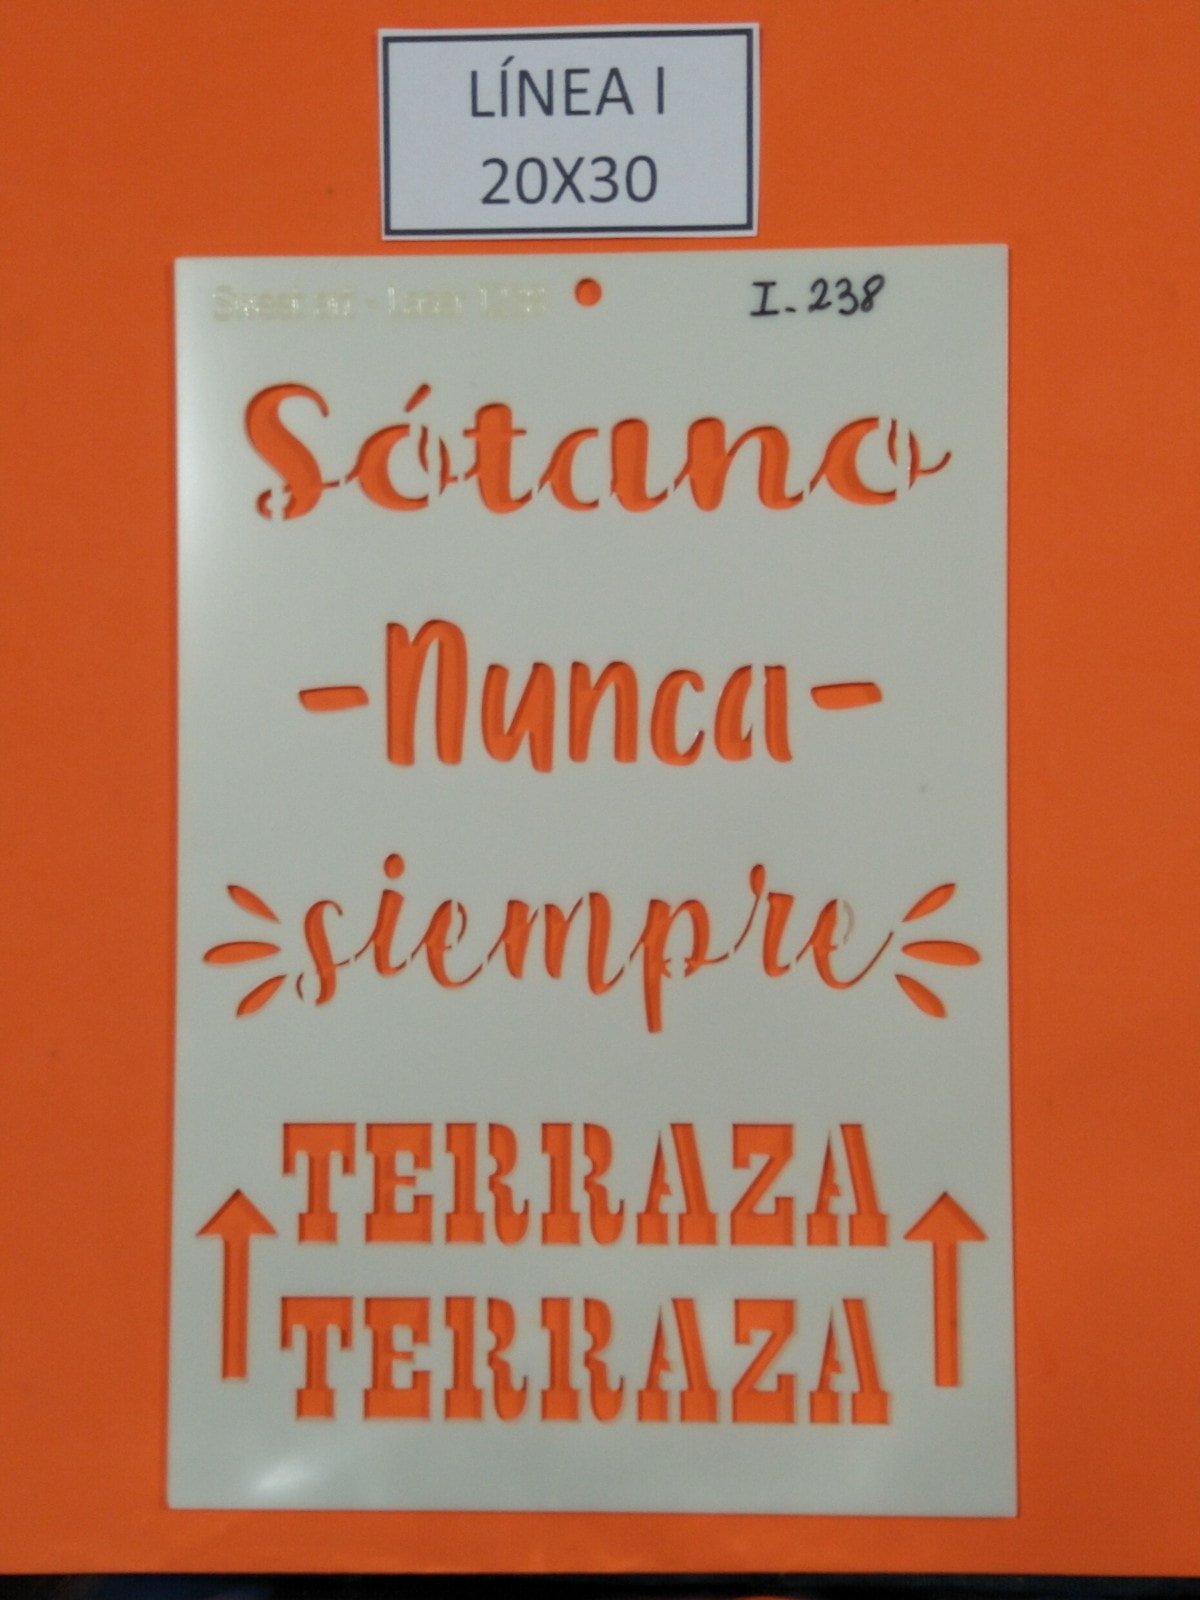 LÍNEA I
20X30
I-238
Sótano
-Nunca-
siempre
TERRAZA
TERRAZA